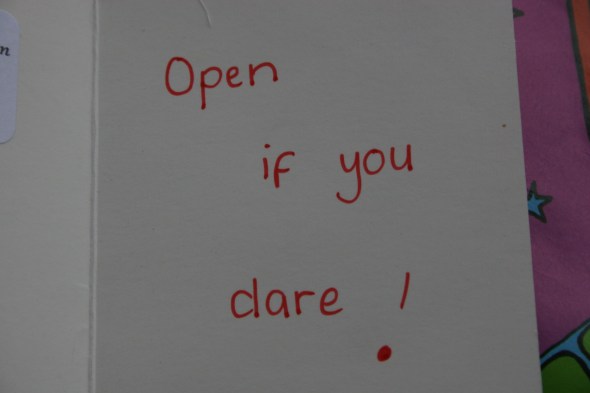 Open
if you
dare !